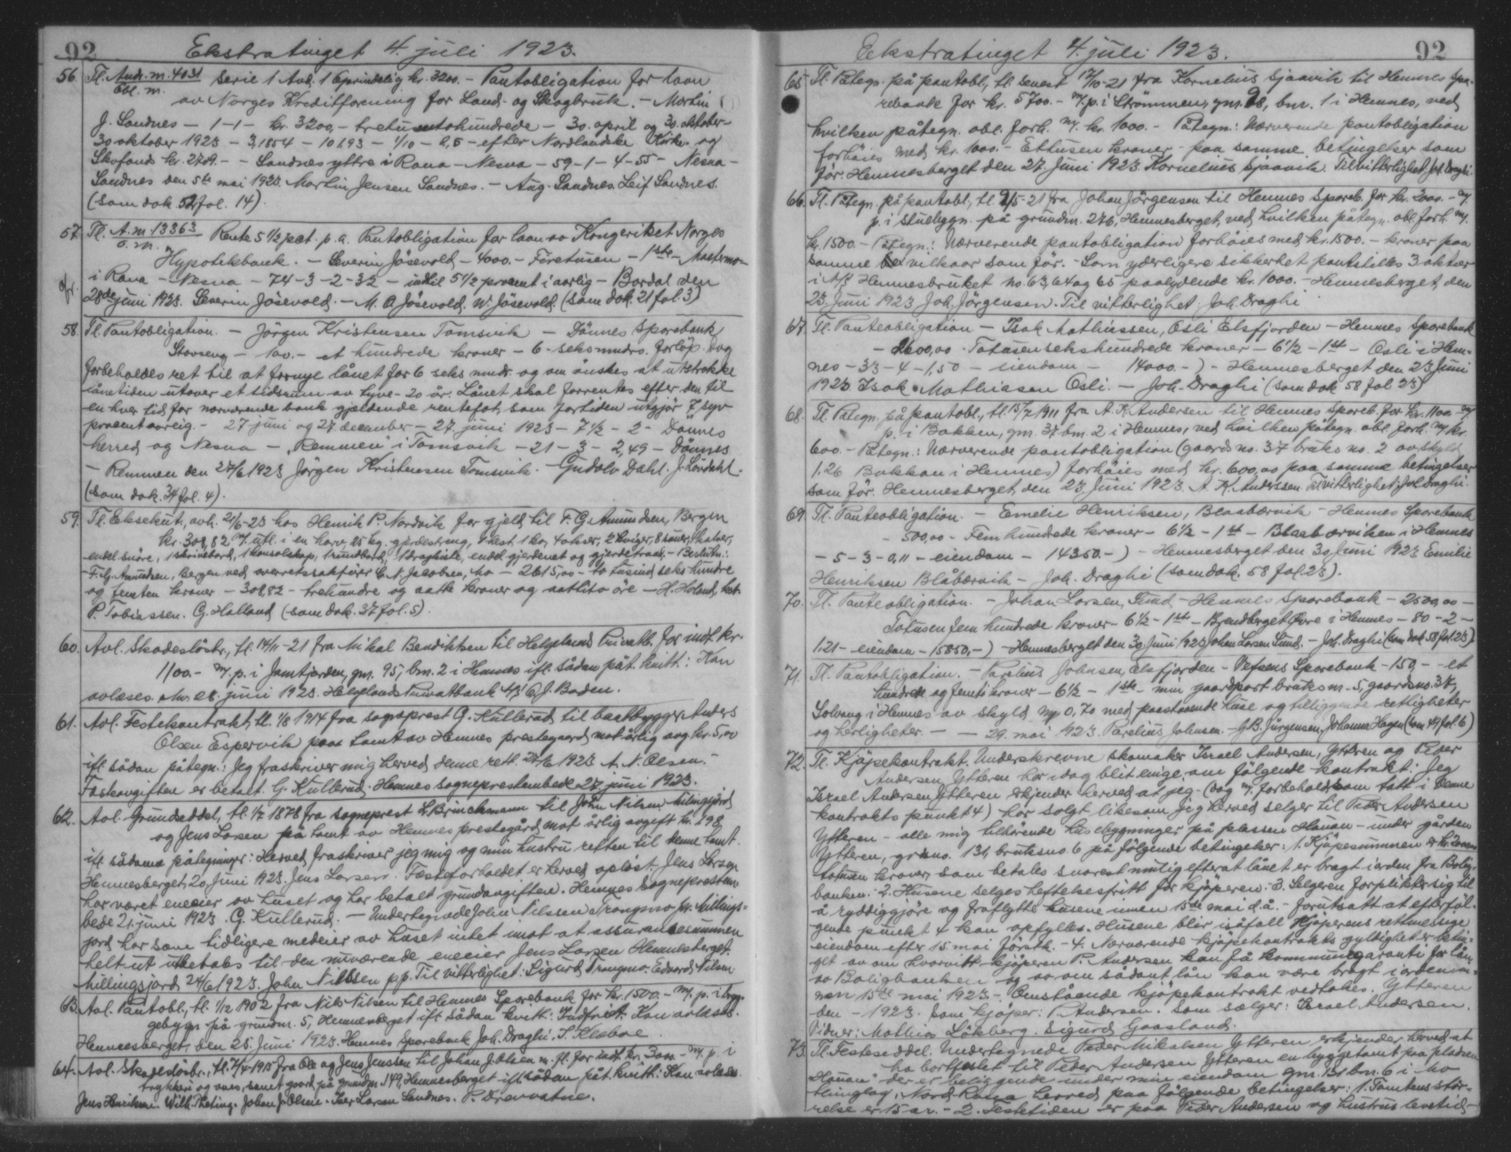 92
Ekstratinget 4. juli 1923.
56. Tl. Andr. m. 4031 serie 1 Avd. 1 Oprindelig kr. 3200.- Pantobligation for laan
obl. m. av Norges Kreditforening for Land- og Skogbruk. - Martin
J. Sandnes - 1-1- kr. 3200,- tretusentohundrede - 30. april og 30. oktober
30 oktober 1923 - 3,1854 - 10693 - 1/10 - 0,5 - efter Nordlandske Kirke- og
Skofond kr. 2709. - - Sandnes yttre i Rana - Nesna - 59-1-4-55 - Nesna -
Sandnes den 5te mai 1923. Martin Jensen Sandnes. - Aug. Sandnes. Leif Sandnes.
(som dok 52 fol. 14).
57. Tl. A. m. 13363 Rente 5 1/2 pct. p. a. Pantobligation for laan av Kongeriket Norges
o. m. Hypotekbank. - Severin Jösevold - 4000.- firetusen - 1ste -
i Rana - Nesna - 74-3-2-32 - indtil 5 1/2 procent i aarlig - Bordal den
28de juni 1923. Severin Jösevold. - M. A. Jösevold. W. Jösevold. (som dok. 21 fol. 3)
58. Tl. Pantobligation. - Jörgen Kristensen Tomsvik - Dönnes Sparebank
- 100.- et hundrede kroner - 6 - seks mndrs. forløp. Dog
forbeholdes ret til at fornye lånet for 6 seks mndr. og om önskes at utstrække
lånetiden utover et tidsrum av tyve - 20 år. Lånet skal forrentes efter den til
en hver tid for nærværende bank gjeldende rentefot, som for tiden utgjör 7 syv
procent aareig - 27 juni og 27 december - 27 juni 1923 - 7 1/2 - 2 - Dönnes
herred og Nesna - "Remmen" i Tomsvik - 21 - 3 - 2,49 - Dönnes
- Remmen den 27/6 1923 Jörgen Kristensen Tomsvik. - Gudolv Dahl. J. Lövdahl.
(som dok. 34 fol. 4).
59. Tl. Eksekut, avh. 2/6-23 hos Henrik P. Nordvik for gjeld til F. G. Amundsen, Bergen
kr. 308,82
- F. G. Amundsen, Bergen ved overretssakfører C. N. Jakobsen, ho - 2615,00 - to tusind seks hundre
og femten kroner - 308,82 - trehundre og aatte kroner og aattito öre - H. Holand,
P. Tobiassen. G. Helland (som dok. 37 fol. 5).
60. Avl. Skadeslösbr., tl. 14/11-21 fra Mikal Bendiktsen til Helgelands Privatb. for indt kr.
1100.- m. p. i Jamtjorden, gm. 95, bm. 2 i Hemnes ifl. sådan påt. kvitt: Kan
avleses. Mo 28. juni 1923. Helgelands Privatbank A/S C. J. Baden.
61. Avl. Festekontrakt, tl. 1/8 1914 fra sogneprest G. Kullerud til baatbygger Anders
Olsen Espervik paa tomt av Hemnes prestegaard mot årlig avg. kr. 5,00
ifl. sådan påtegn.: Jeg fraskriver mig herved denne rett. 27/6 1923 A. N. Olsen.
Festeavgiften er betalt. G. Kullerud. Hemnes sogneprestembede 27 juni 1923.
62. Avl. Grundseddel, tl. 1/2 1878 fra sogneprest H. Brinchmann til John Nilsen Millingsjord
og Jens Larsen på tomt av Hemnes prestegård mot årlig avgift kr. 1,98
ifl. sådanne påtegninger: Herved fraskriver jeg mig og min hustru retten til denne tomt.
Hemnesberget, 20 Juni 1923. Jens Larsen. Festeforholdet er herved oplöst. Jens Larsen
har været eneeier av huset og har betalt grundavgiften. Hemnes sogneprestem-
bede 21 juni 1923 G. Kullerud. - Undertegnede John Nilssen Trongmo pr. Millings-
jord har som tidligere medeier av huset intet imot at assuransesummen
helt ut utbetales til den nuværende eneeier Jens Larsen Hemnesberget.
Millingsjord 24/6 1923. John Nilssen p. p. Til vitterlighet: Sigurd Trongmo. Edvard Nilsen
63. Avl. Pantobl, tl. 1/12 1902 fra Nils Nilsen til Hemnes Sparebank for kr. 1500.- m. p. i byg-
gebygn. på grundm. 5, Hemnesberget ifl. sådan kvitt: Indfriet. Kan avlæses.
Hemnesberget, den 25 Juni 1923. Hemnes Sparebank Joh. Draghi. S. Klæboe.
64. Avl. Skadeslösbr., tl. 7/4 1915 fra Ole og Jens Jenssen til Johan J. Olsen m. fl. for indt kr. 300.- m. p. i
på grundm 149, Hemnesberget ifl. sådan påt. kvitt: Kan avlæses.
Jens Havikson. Wilh. Meting. Johan J. Olsen. Iver Larsen Sandnes.
92
Ekstratinget 4. juli 1923.
65. Tl. Påtegn. på pantobl, tl. senest 17/10-21 fra Kornelius Sjaavik til Hemnes Spa-
rebank for kr. 5700.- m. p. i Strömmen, gm. 98, bm. 1 i Hemnes, ved
hvilken påtegn. obl. forh. m. kr. 1000.- Påtegn: Nærværende pantobligation
forhöies med kr. 1000.- Ettusen kroner - paa samme betingelser som
för. Hemnesberget den 27. Juni 1923 Kornelius Sjaavik. Til vitterlighet, Joh. Draghi.
66. Tl. Påtegn. på pantobl, tl. 2/5-21 fra Johan Jörgensen til Hemnes Spareb. for kr. 2000.- m.
p. i stuebygn. på grundm. 276, Hemnesberget, ved hvilken påtegn. obl. forh. m.
kr. 1500.- Påtegn.: Nærværende pantobligation forhöies med kr. 1500.- kroner paa
samme vilkaar som för. - Som yderligere sikkerhet pantstilles 3 aktier
i A/S Hemnesbruket no. 63, 64 og 65 paalydende kr. 1000.- Hemnesberget, den
23 Juni 1923 Joh. Jörgensen. Til vitterlighet, Joh. Draghi.
67. Tl. Panteobligation - Isak Mathiessen, Osli Elsfjorden - Hemnes Sparebank
- 2600,00 - Totusenseks hundrede kroner - 6 1/2 - 1st - Osli i Hem-
nes - 33 - 4 - 1,50 - eiendom - 14000. - ) - Hemnesberget den 23 Juni
1923 Isak Mathiasen Osli - Joh. Draghi (som dok 58 fol 23)
68. Tl. Påtegn. på pantobl, tl. 15/2 1911 fra A. K. Andersen til Hemnes Spareb. for kr. 1100.- m
p. i Bakken, gm. 37 bm. 2 i Hemnes, ved hvilken påtegn. obl. forh. m kr.
600.- Påtegn: Nærværende pantobligation (gaards no. 37 bruks no. 2 av skyld
1,26 Bakkan i Hemnes) forhöies med kr. 600,00 paa samme betingelser
som för. Hemnesberget, den 23 Juni 1923. A. K. Anderssen Til vitterlighet: Joh. Draghi.
69. Tl. Panteobligation. - Emelie Henriksen, Blaabærvik - Hemnes Sparebank
- 500,00 - Femhundrede kroner - 6 1/2 - 1st - Blaabærviken i Hemnes
- 5 - 3 - 0,11 - eiendom - 14350. - ) - Hemnesberget den 30 Juni 1923 Emilie
Henriksen Blåbærvik - Joh. Draghi (som dok. 58 fol. 23).
70. Tl. Panteobligation. - Johan Larsen, Sund - Hemnes Sparebank - 2500,00 -
Totusenfemhundrede kroner - 6 1/2 - 1st - i Hemnes - 80 - 2 -
1,21 - eiendom - 15850, - ) - Hemnesberget den 30 Juni 1923 Johan Larsen Sund. - Joh. Draghi (som dok 58 fol. 23)
71. Tl. Pantobligation. - Parelius Johnsen, Elsfjorden - Vefsens Sparebank - 150, - - et
hundrede og femti kroner - 6 1/2 - 1ste - min gaardpart bruksm. 5, gaardsno. 34,
Solvang i Hemnes av skyld ny 0,70 med paastaaende huse og tilliggende rettigheter
og herligheter - - 29. mai 1923 Parelius Johnsen. - G. B. Jörgensen, Johanna Hagen (som 49 fol 6)
72. Tl. Kjöpekontrakt. Underskrevne skomaker Israel Andersen, Ytteren og Peder
Andersen, Ytteren har idag blit enige om fölgende kontrakt: Jeg
Israel Andersen Ytteren erkjender herved at jeg (og m. forbehold som tatt i denne
kontrakts punkt 4) har solgt likesom jeg herved selger til Peder Andersen
Ytteren - alle mig tilhörende husebygninger på plassen Hauan - under gården
Ytteren, grdsno. 131, bruksno 6 på fölgende betingelser: 1. Kjöpesummen er kr.
kroner, som betales snarest mulig efter at lånet er bragt i orden fra Bolig-
banken. - 2. Husene selges heftelsesfritt for kjöperen. - 3. Selgeren forplikter sig til
å ryddiggjöre og fraflytte husene innen 15de mai d. å. - forutsatt at efterföl-
gende punkt 4 kan opfylles. Husene blir isåfall kjöperens rettmessige
eiendom efter 15 mai förstk. - 4. Nærværende kjöpekontrakts gyldighet er betin-
get av om hvorvitt kjöperen P. Andersen kan få kommunegaranti for lån
av Boligbanken og at sådant lån kan være bragt i orden in-
nen 15de mai 1923. - Omstående kjöpekontrakt vedtakes. Ytteren
den - 1923. Som kjöper: P. Andersen. Som selger: Israel Andersen.
Vidner: Mathias Lökberg. Sigurd Gaasland.
73. Tl. Festeseddel. Undertegnede Peder Mikalsen Ytteren erkjender herved at
ha bortfestet til Peder Andersen Ytteren en byggetomt paa pladsen
"Hauan" der er beliggende under min eiendom gm. 131 bm. 6 i Mo
tinglag, Nord-Rana herred paa fölgende betingelser: 1. Tomtens stör-
relse er 15 ar. - 2. Festetiden er paa Peder Andersen og hustrus levetid -